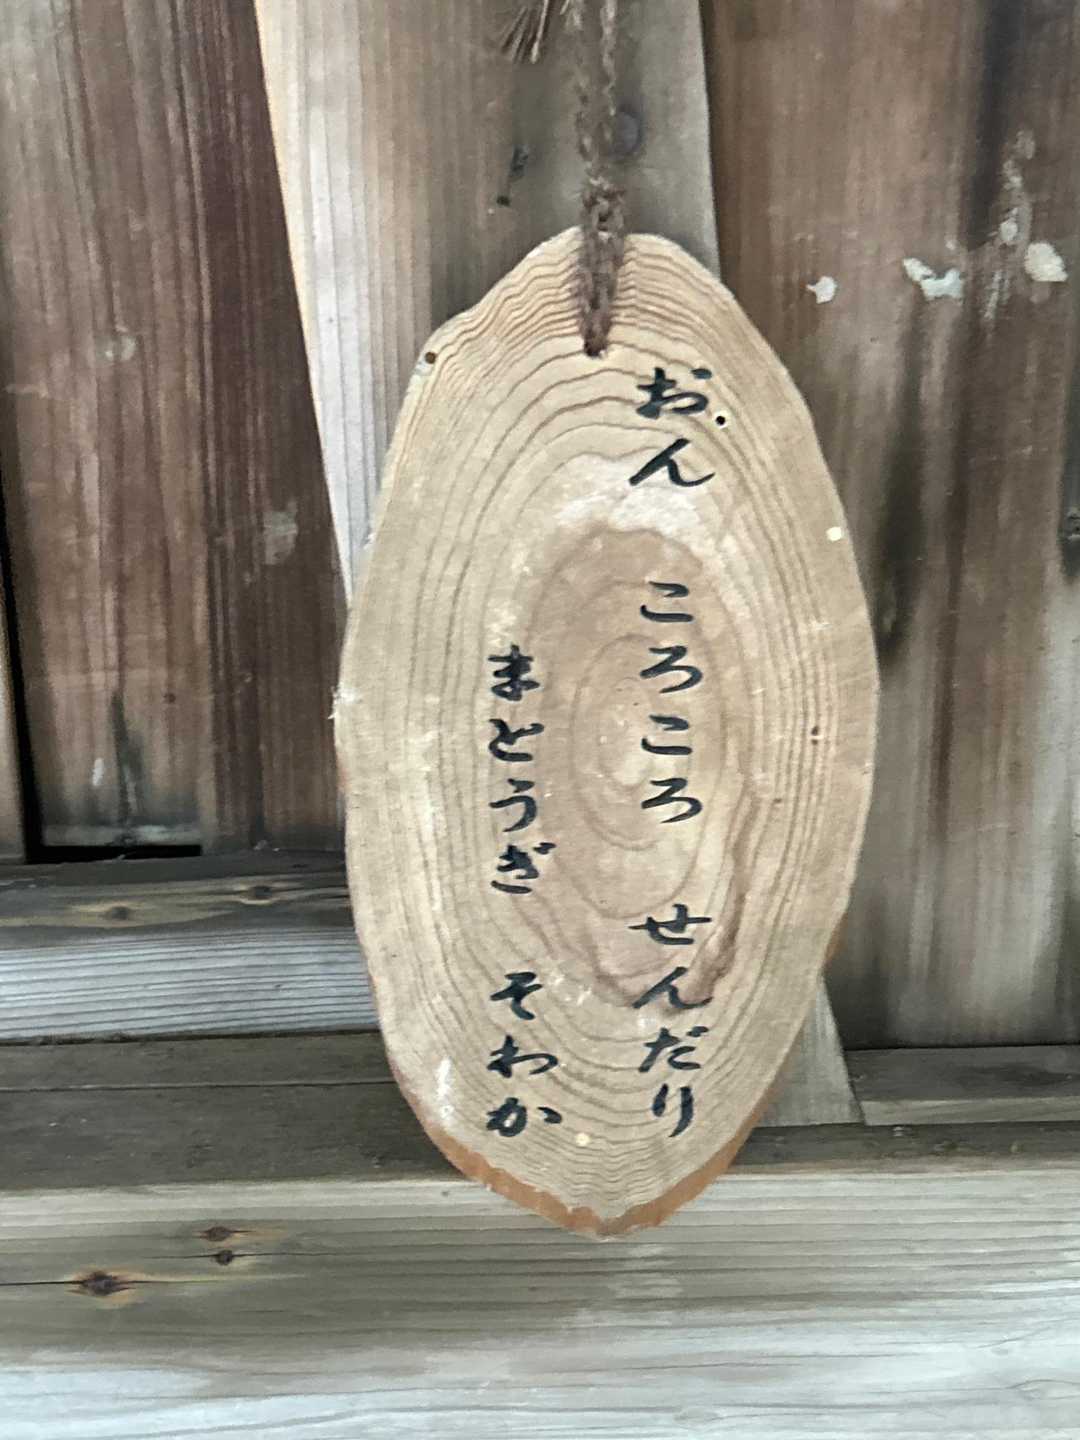 おん　ころころ　せんだり
まどうぎ　そわか